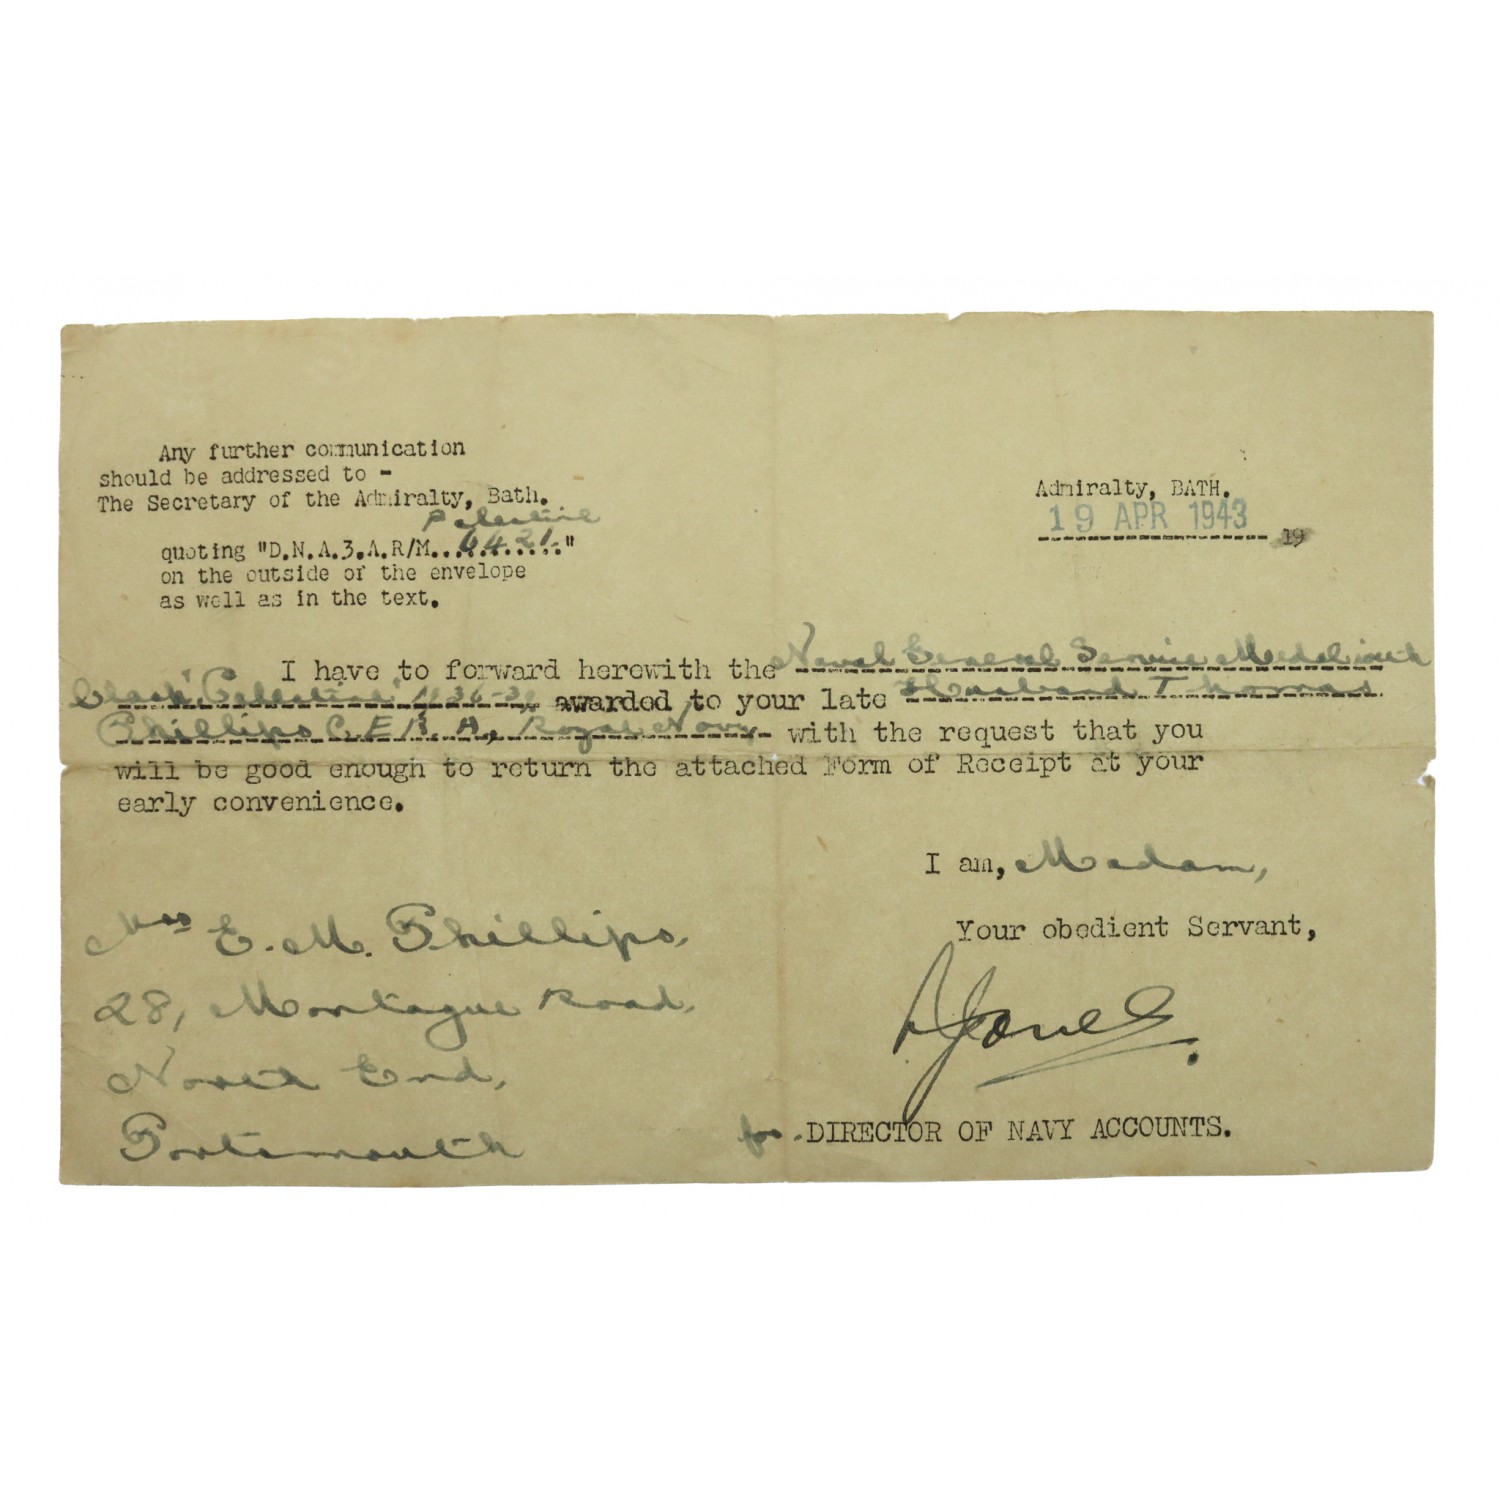 Any further communication
should be addressed to -
The Secretary of the Admiralty, Bath.
Palestine
quoting "D.N.A.3.A.R/M...6421..."
on the outside of the envelope
as well as in the text.
Admiralty, BATH.
19 APR 1943
19
I have to forward herewith the Naval General Service Medal with
Clasp "Palestine" 1936-39 awarded to your late Husband Thomas
Phillips C.E.R.A, Royal Navy with the request that you
will be good enough to return the attached Form of Receipt at your
early convenience.
I am, Madam,
Your obedient Servant,
Jones
for DIRECTOR OF NAVY ACCOUNTS.
Mrs E. M. Phillips,
28, Montague Road,
North End,
Portsmouth